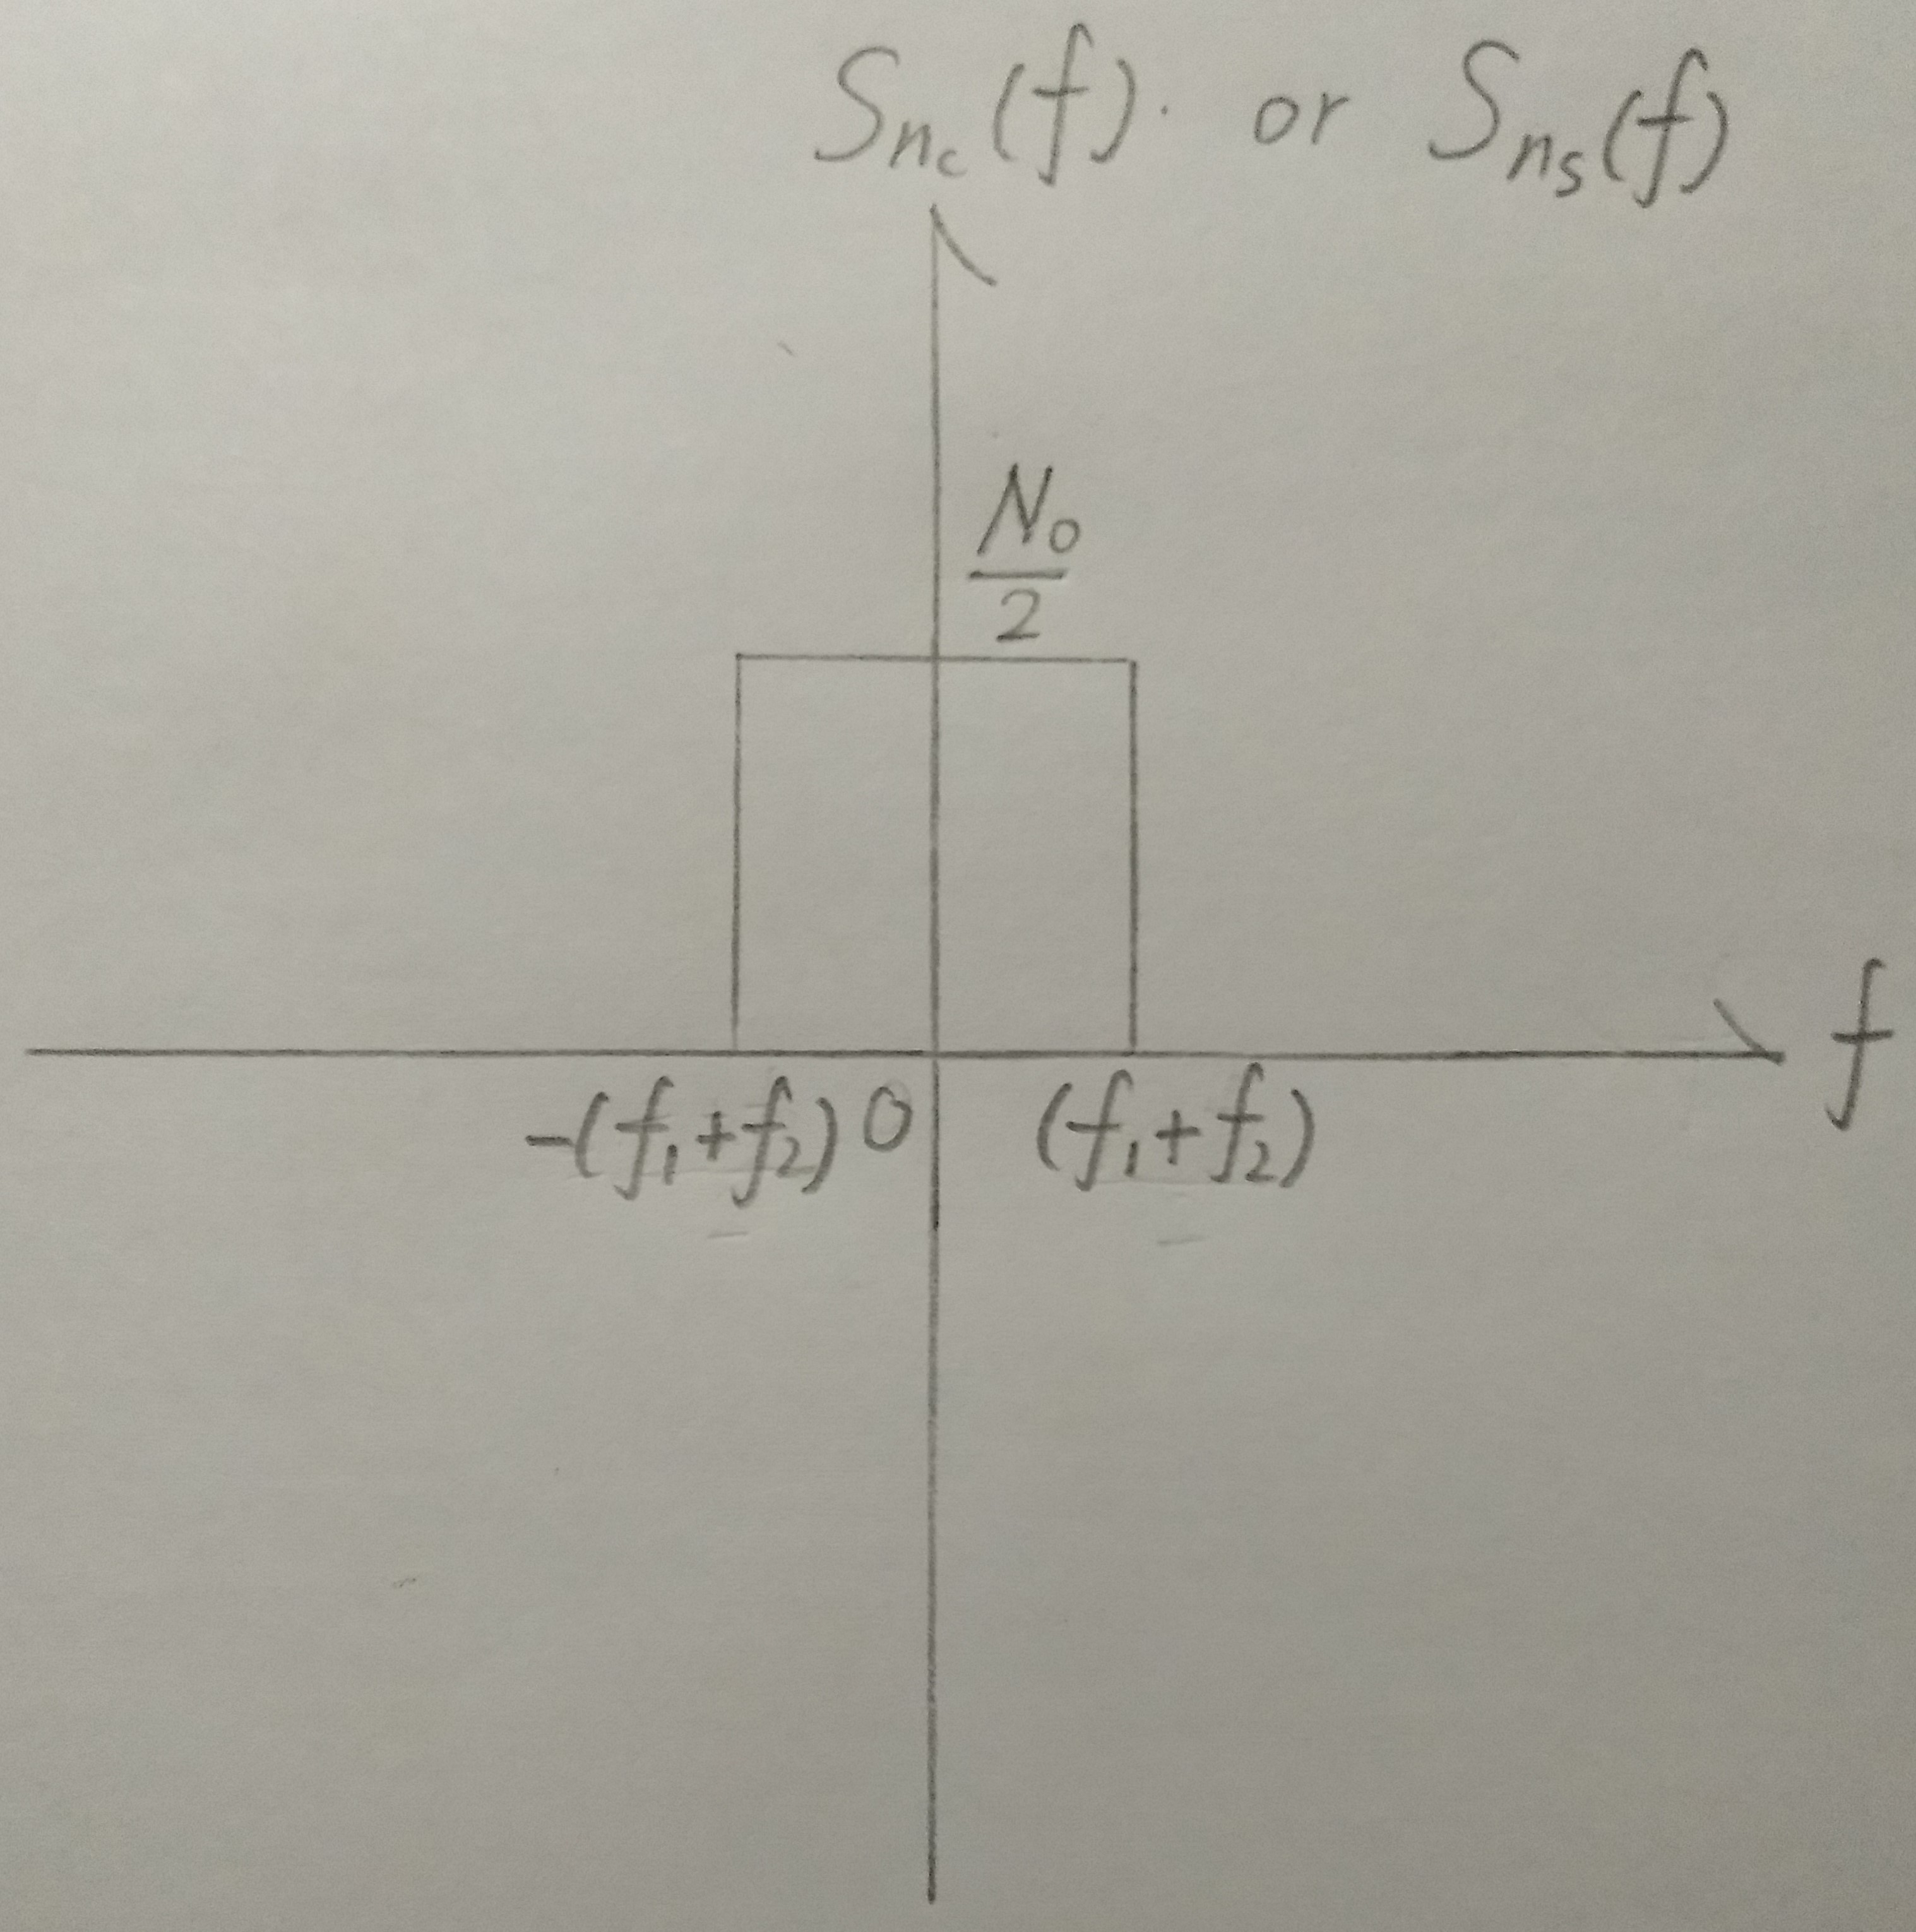 S_{n_c}(f). or S_{n_s}(f)
N_0
2
-(f_1+f_2) 0 (f_1+f_2)
f